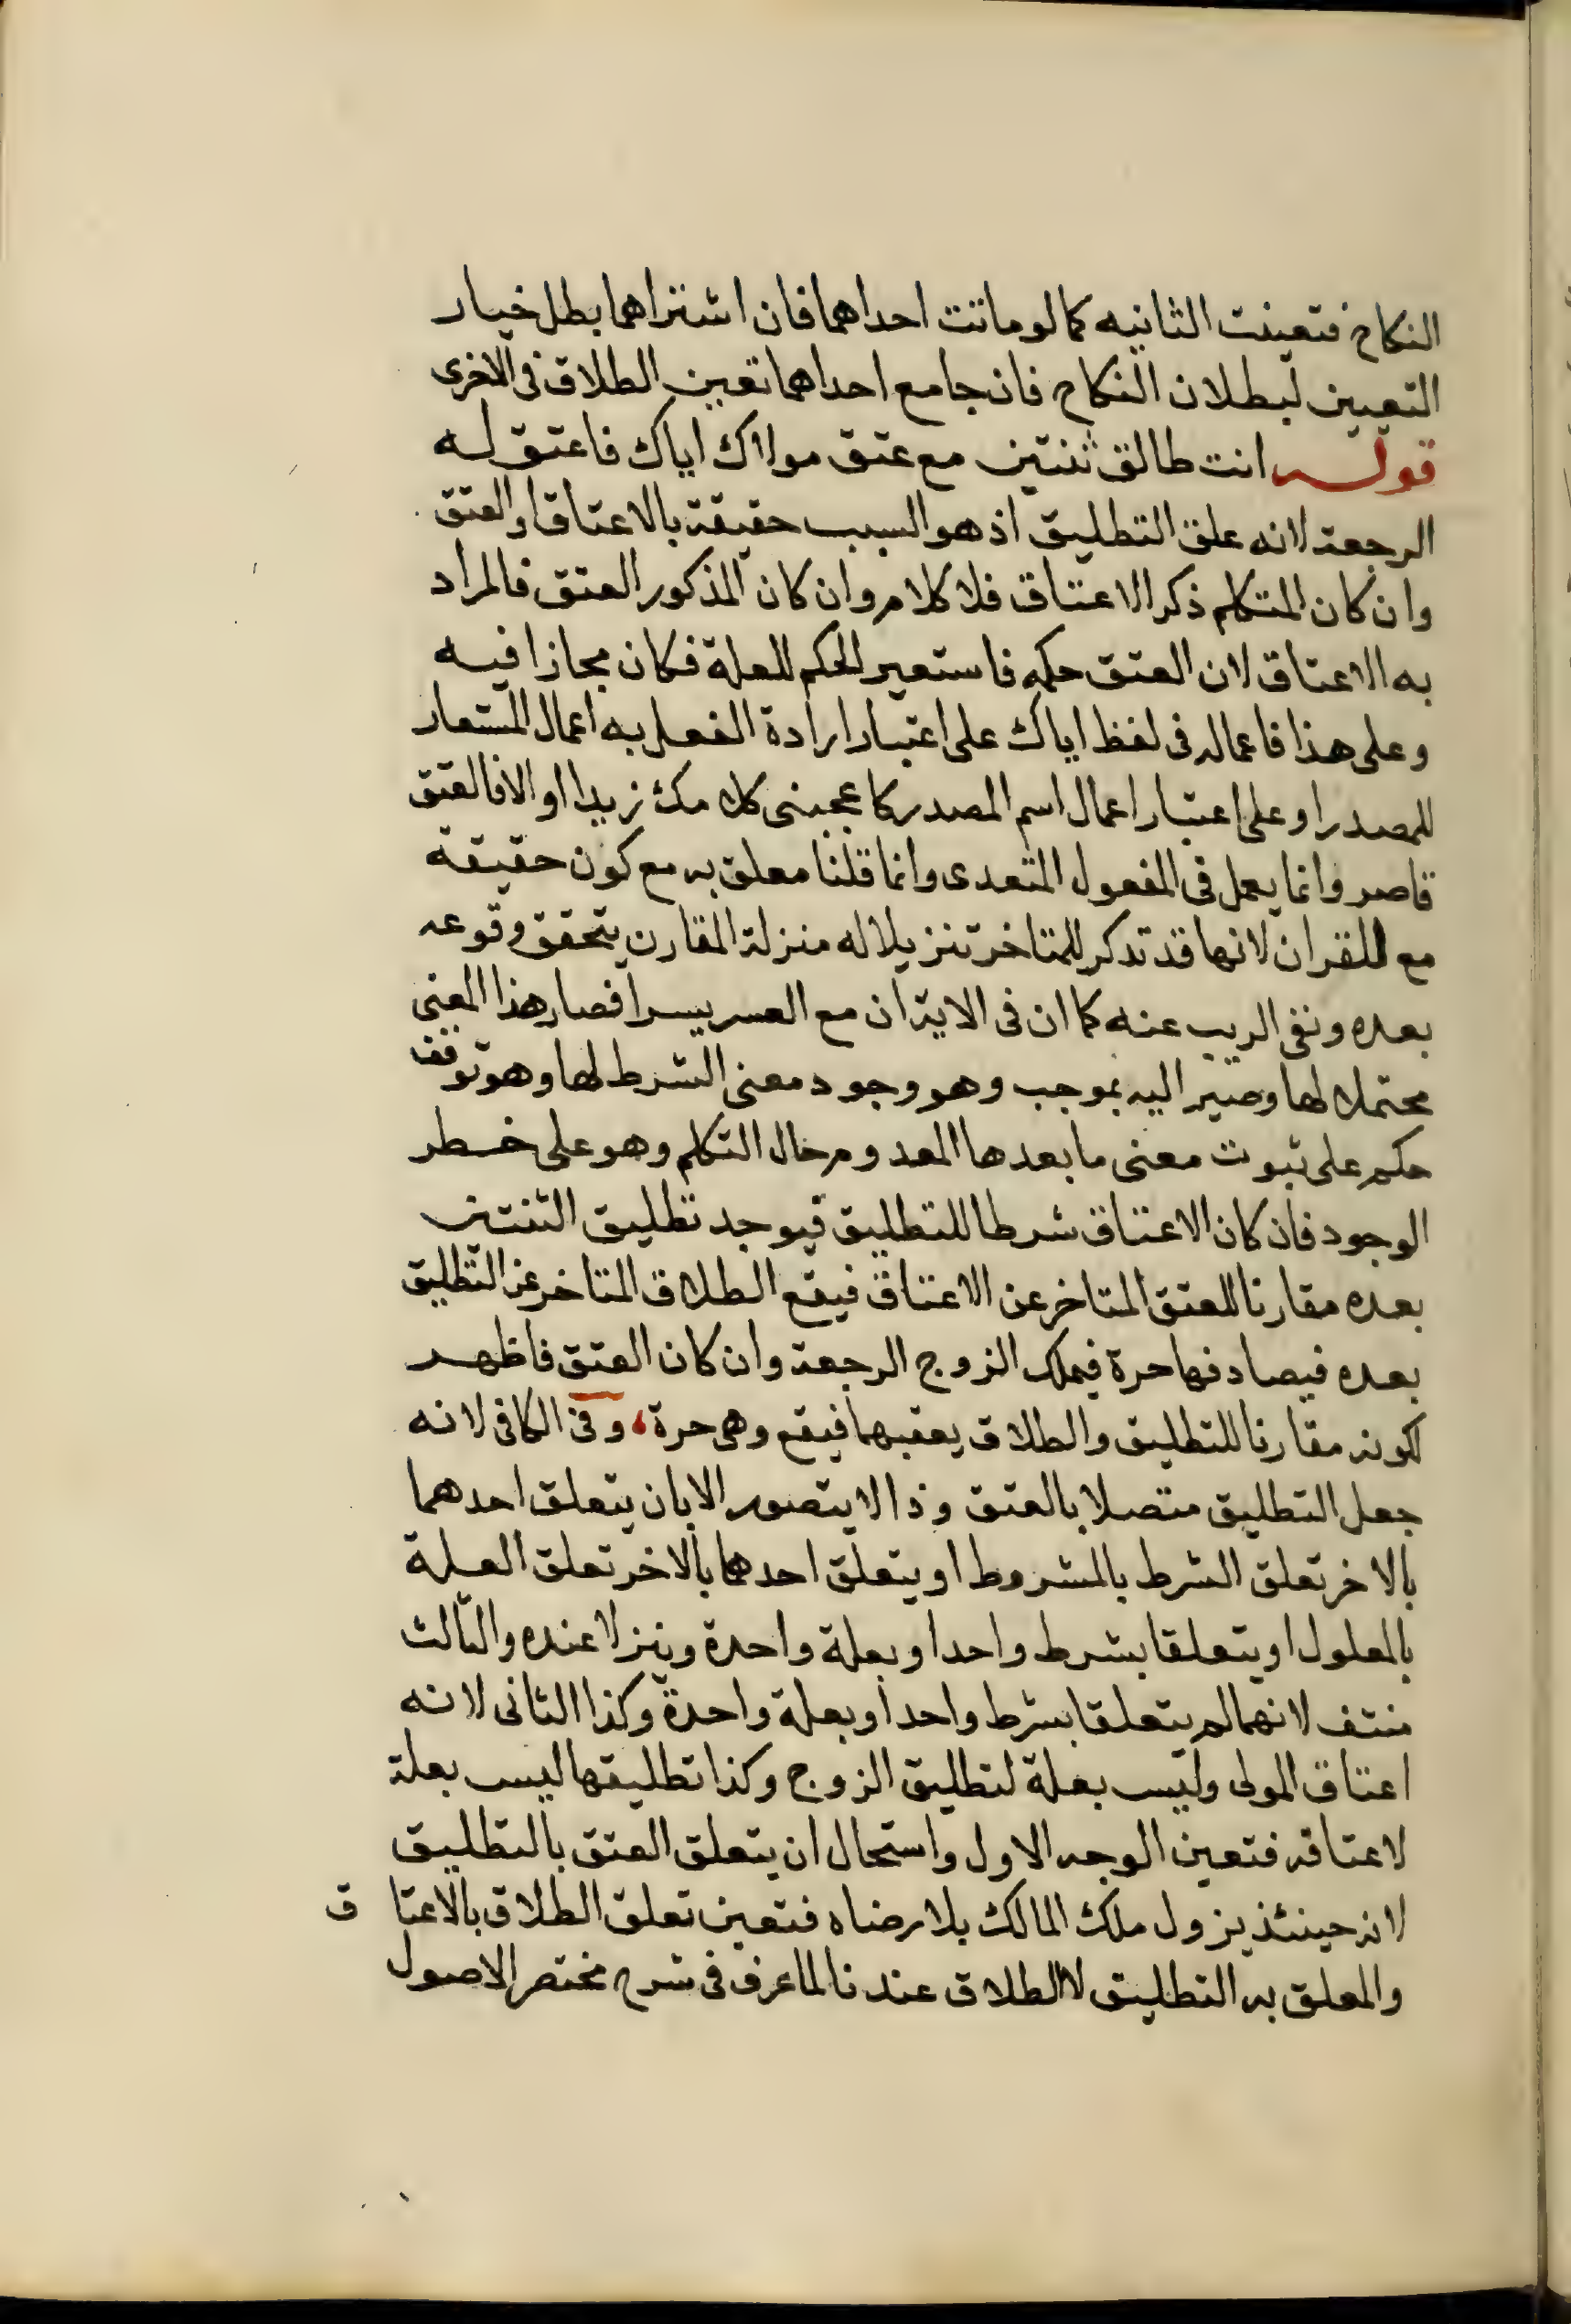 النكاح فتعينت الثانيه كما لو ماتت احداهما فان اشتراهما بطل خيار
التعيين لبطلان النكاح فان جامع احداهما تعين الطلاق فى الاخرى
قوله انت طالق ثنتين مع عتق مولاك اياك فاعتق له
الرجعة لانه علق التطليق اذ هو السبب حقيقة بالاعتاق او العتق
وان كان المتكلم ذكر الاعتاق فلا كلام وان كان المذكور العتق فالمراد
به الاعتاق لان العتق حكمه فاستعير الحكم للعلة فكان مجازا فيه
وعلى هذا فاعماله فى لفظ اياك على اعتبار ارادة الفعل به اعمال المستعار
للمصدر او على اعتبار اعمال اسم المصدر كاعجبنى كلامك زيدا او الا فالعتق
قاصر وانما يعمل فى المفعول المتعدى وانما قلنا معلق به مع كون حقيقة
مع للقران لانها قد تذكر للمتاخر تنزيلا له منزلة المقارن يتحقق وقوعه
بعده ونفى الريب عنه كما ان فى الاية ان مع العسر يسرا فصار هذا المعنى
محتملا لها وصير اليه بموجب وهو وجود معنى الشرط لها وهو توقف
حكم على ثبوت معنى ما بعدها المعدوم حال التكلم وهو على خطر
الوجود فان كان الاعتاق شرطا للتطليق فيوجد تطليق الثنتين
بعده مقارنا للعتق المتاخر عن الاعتاق فيقع الطلاق المتاخر عن التطليق
بعده فيصادفها حرة فيملك الزوج الرجعة وان كان العتق فاظهر
لكونه مقارنا للتطليق والطلاق يعقبهما فيقع وهى حرة، وفى الكافى لانه
جعل التطليق متصلا بالعتق وذا لا يتصور الا بان يتعلق احدهما
بالاخر تعلق الشرط بالمشروط او يتعلق احدهما بالاخر تعلق العلة
بالمعلول او يتعلقا بشرط واحد او بعلة واحدة وينزلا عنده والثالث
منتف لانهما لم يتعلقا بشرط واحد او بعلة واحدة وكذا الثانى لانه
اعتاق المولى وليس بعلة لتطليق الزوج وكذا تطليقها ليس بعلة
لاعتاقه فتعين الوجه الاول واستحال ان يتعلق العتق بالتطليق
لانه حينئذ يزول ملك المالك بلا رضاه فتعين تعلق الطلاق بالاعتاق
والمعلق به التطليق لا الطلاق عندنا لما عرف فى شرح مختصر الاصول